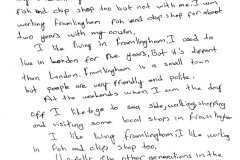 fish and chip shop too but not with me. I am
working Framlingham fish and chip shop for about
two years with my cousin.
I like living in Framlingham, I used to
live in London for five years, But it's different
than London. Framlingham is a small town
but people are very friendly and polite.
At the weekends when I am the day
off I like to go to sea side, walking, shopping
and visiting some local shops in Framlingham
I like living framlingham, I like working
in fish and chips too.
the other generations in the